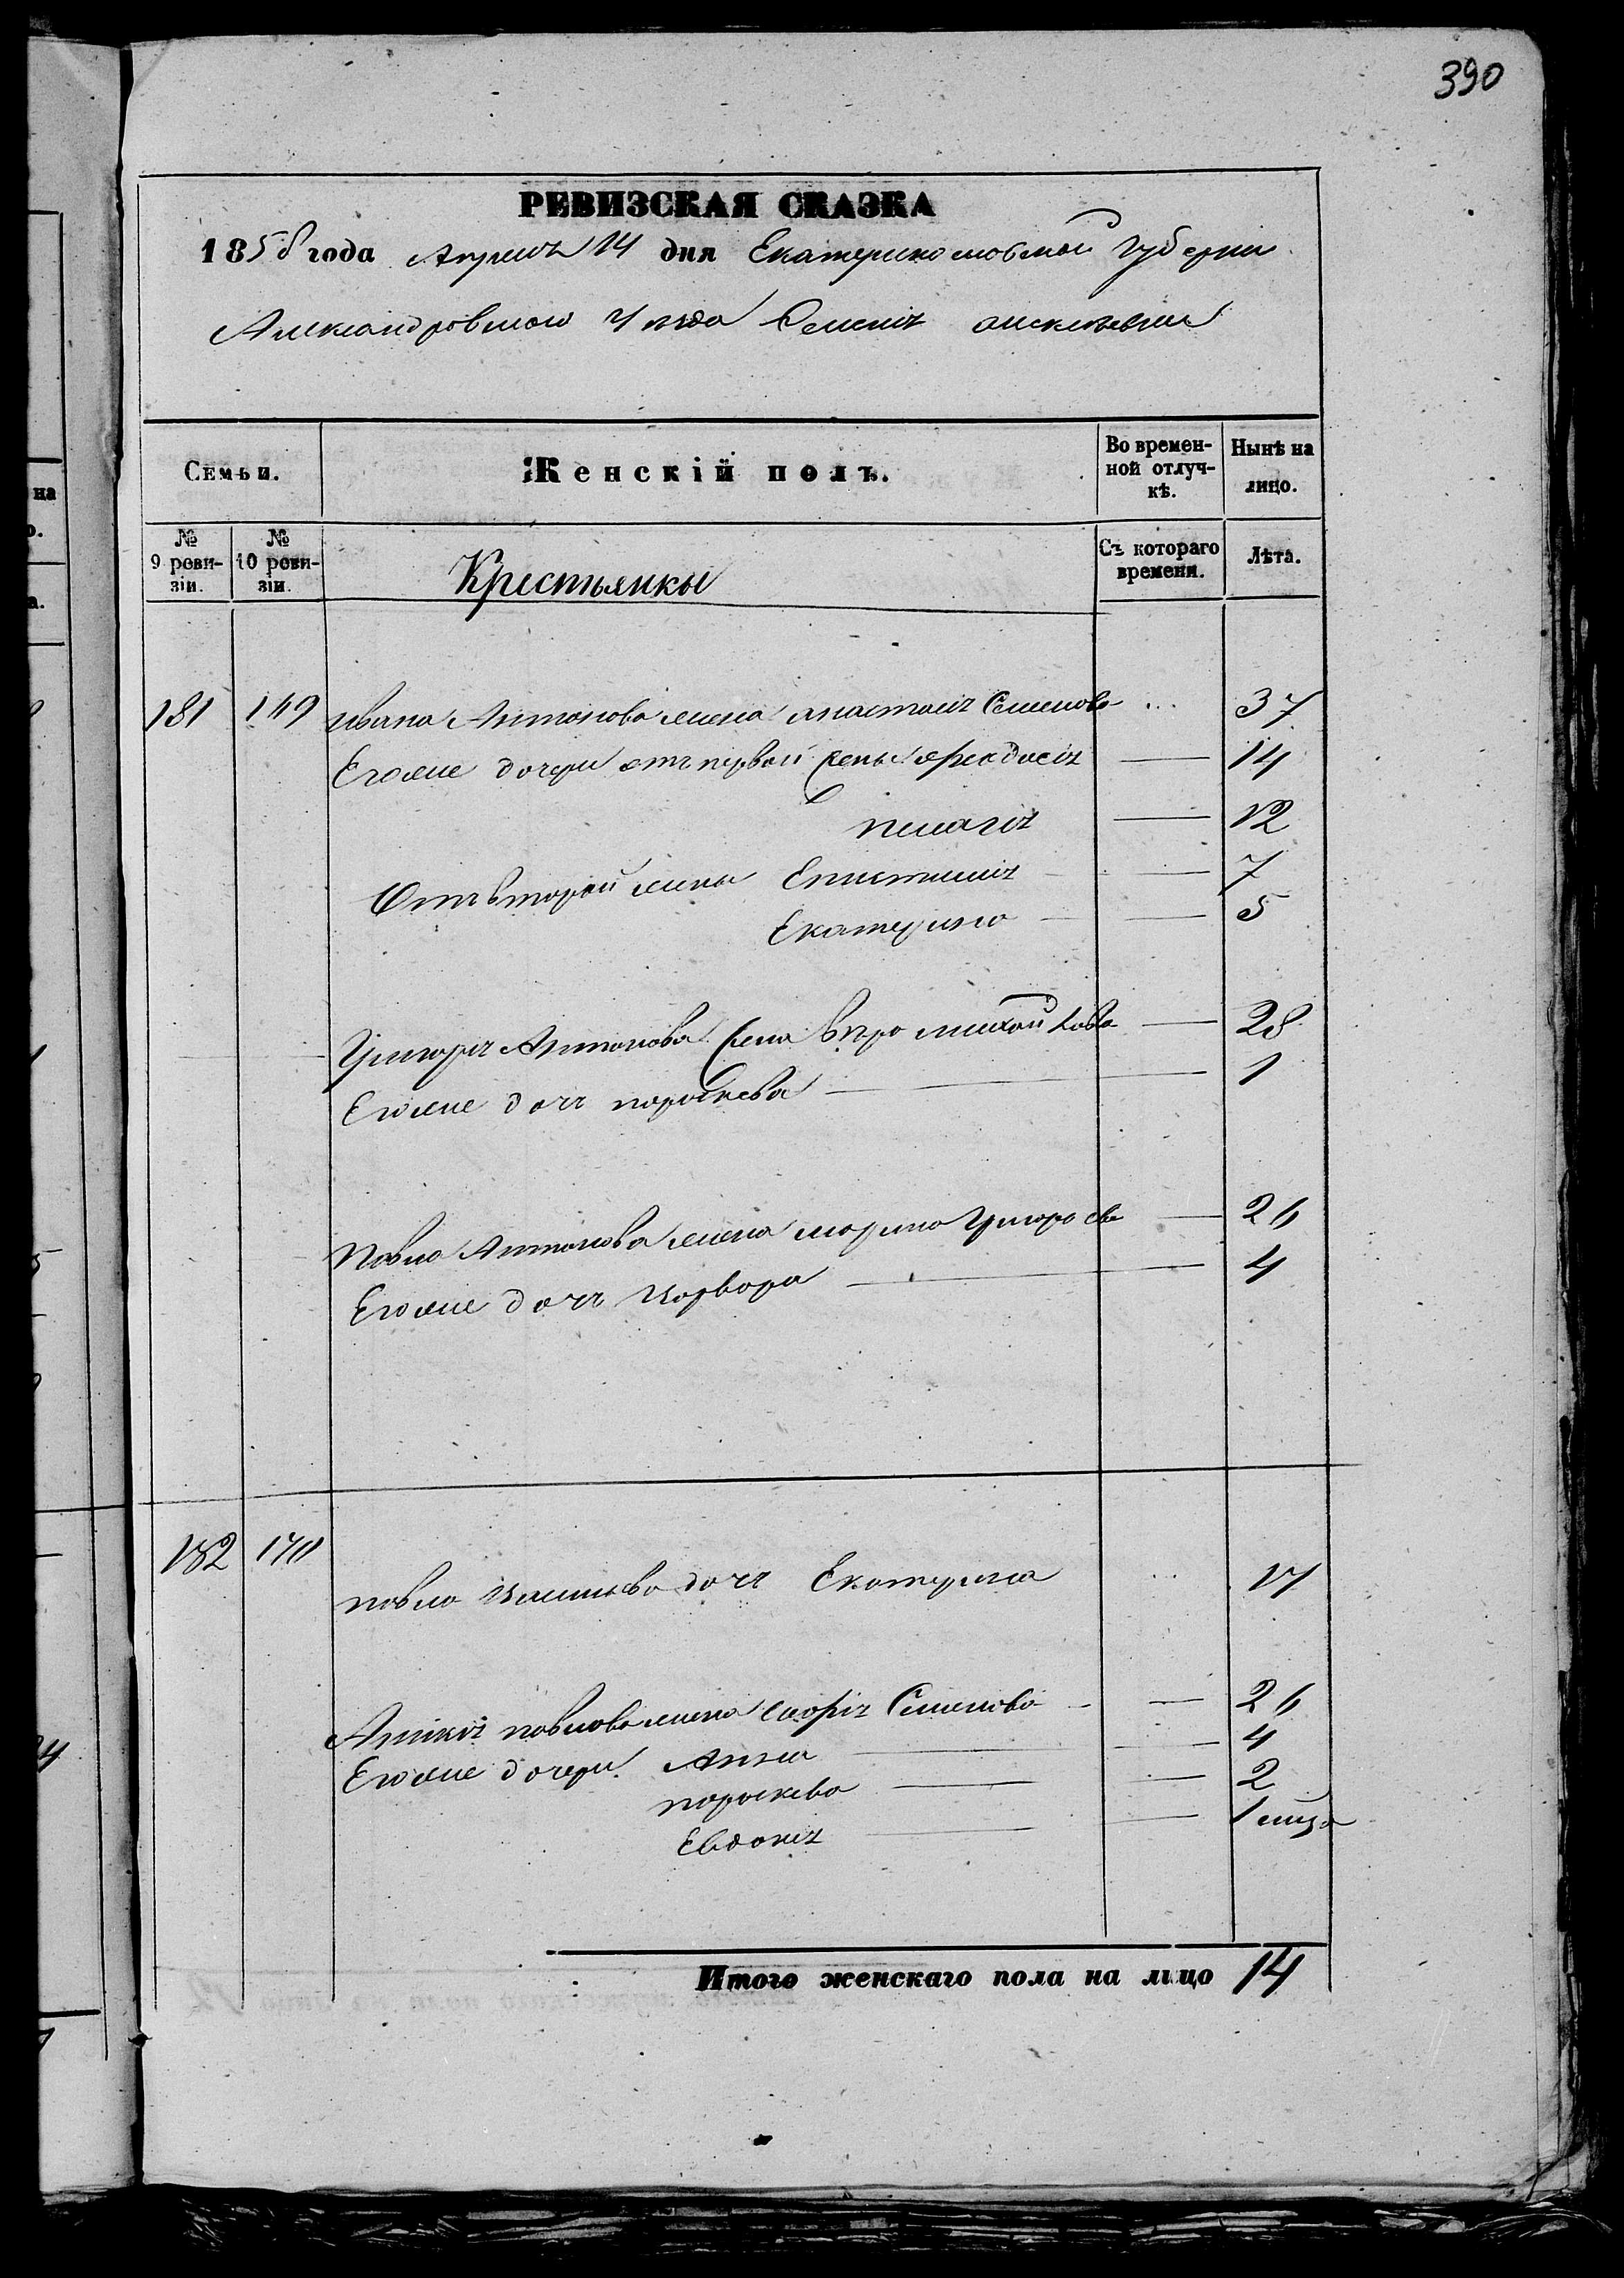 390
РЕВИЗСКАЯ СКАЗКА
1858 года Апреля 14 дня Екатеринославской Губерніи
Александровскаго Уезда Селенія
Семьи. Женскій полъ. Во времен-ной отлуч-кѣ. Нынѣ на лицо.
№ 9 реви-зіи. № 10 реви-зіи. Крестьянки Съ котораго времени. Лѣта.
181 149 Ивана Антонова жена Анастасія Семенова 37
Егоже дочери отъ первой жены 14
пелагія 12
Отъ второй жены Епистимія 7
Екатерина 5
Григорія Антонова жена Михайлова 28
Егоже дочь параскева 1
Павла Антонова жена марина Григорьева 26
Егоже дочь Варвара 4
182 павла дочь Екатерина 17
павлова жена Софія Семенова 26
Егоже дочери Анна 4
параскева 2
Евдокія 1 мца
Итого женскаго пола на лицо 14
на
о.
а.